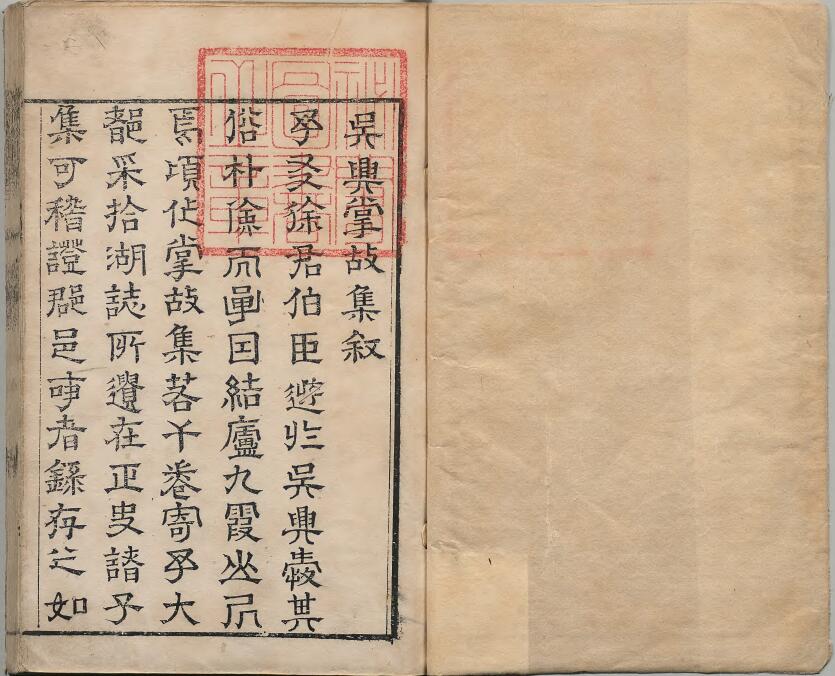 吳興掌故集叙
予友徐君伯臣遊於吳興其
俗朴儉囙結廬九霞山凥
焉頃作掌故集若干卷寄予大
都采拾湖誌所遺在正史諸子
集可稽證郡邑事者錄存之如